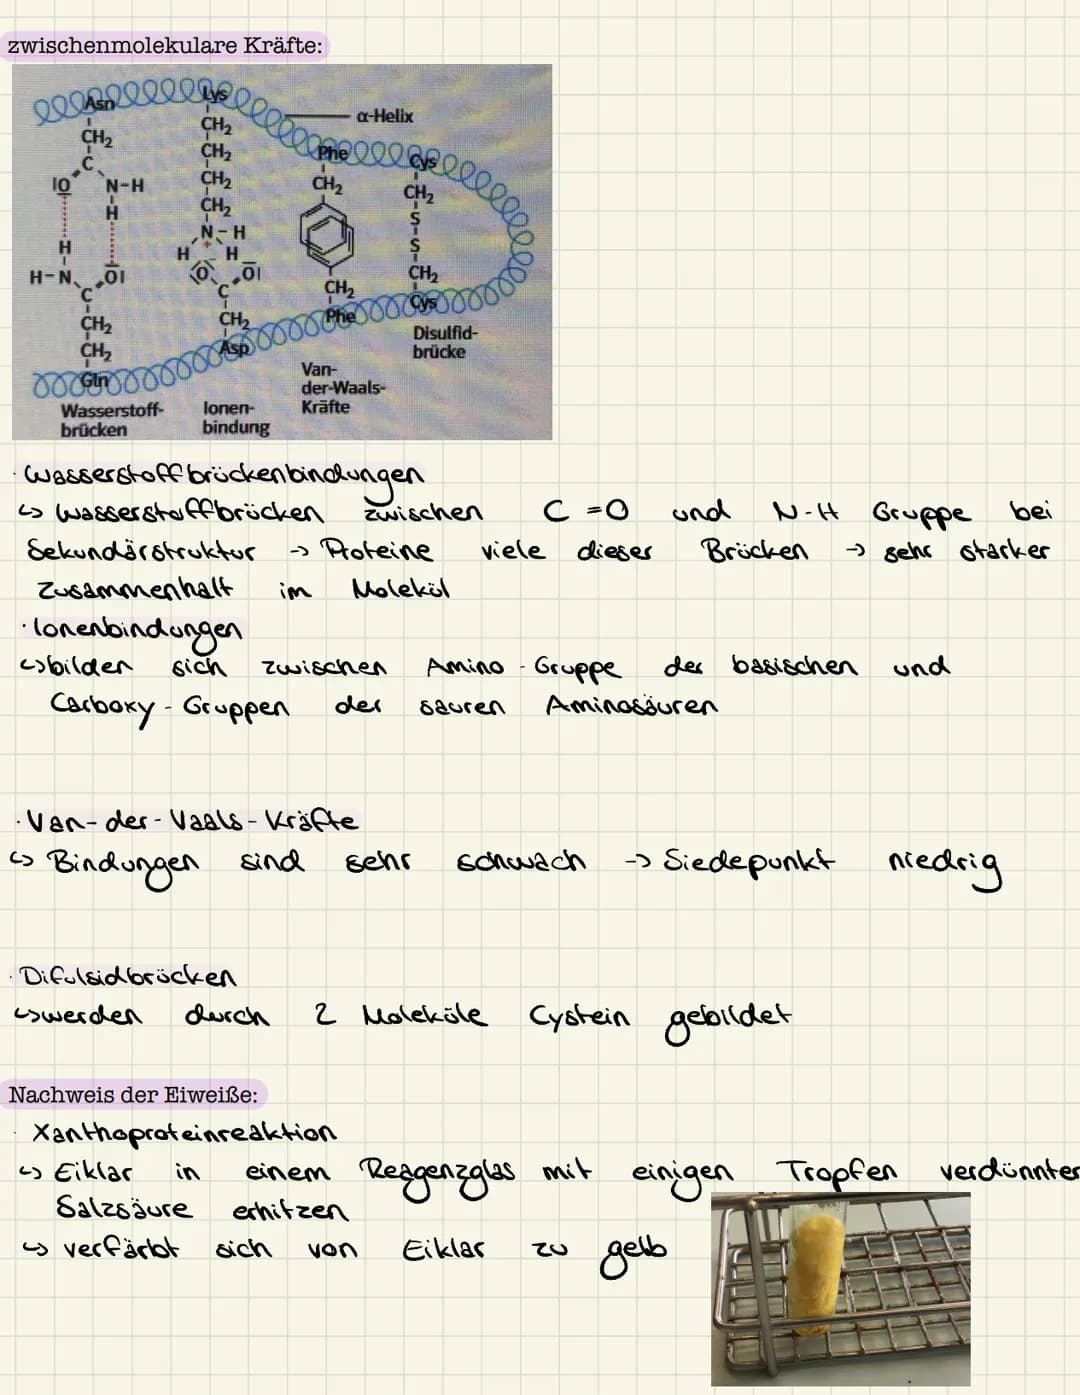 zwischenmolekulare Kräfte:
Asn
Lys
α-Helix
Phe
Cys
CH₂
C
IO
N-H
H
H
H-N
OI
C
CH₂
CH₂
Gln
CH₂
CH₂
CH₂
CH₂
N-H
H
H
O
OI
C
CH₂
Asp
CH₂
CH₂
Phe
CH₂
S
S
CH₂
Cys
Disulfid-
brücke
Van-
der-Waals-
Kräfte
Wasserstoff-
brücken
Ionen-
bindung
· Wasserstoffbrückenbindungen
↪ Wasserstoffbrücken zwischen C=O und N-H Gruppe bei
Sekundärstruktur → Proteine viele dieser Brücken → sehr starker
Zusammenhalt im Molekül
· Ionenbindungen
↪ bilden sich zwischen Amino-Gruppe der basischen und
Carboxy-Gruppen der sauren Aminosäuren
· Van-der-Vaals-Kräfte
↪ Bindungen sind sehr schwach → Siedepunkt niedrig
· Difulsidbrücken
↪ werden durch 2 Moleküle Cystein gebildet
Nachweis der Eiweiße:
· Xanthoproteinreaktion
↪ Eiklar in einem Reagenzglas mit einigen Tropfen verdünnter
Salzsäure erhitzen
↪ verfärbt sich von Eiklar zu gelb